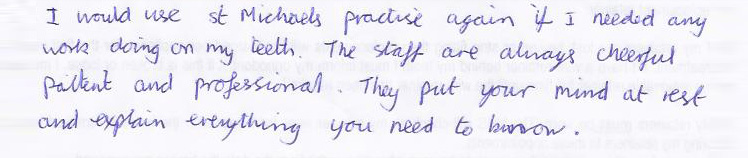 I would use st Michaels practise again if I needed any
work doing on my teeth. The staff are always cheerful
patient and professional. They put your mind at rest
and explain everything you need to know.